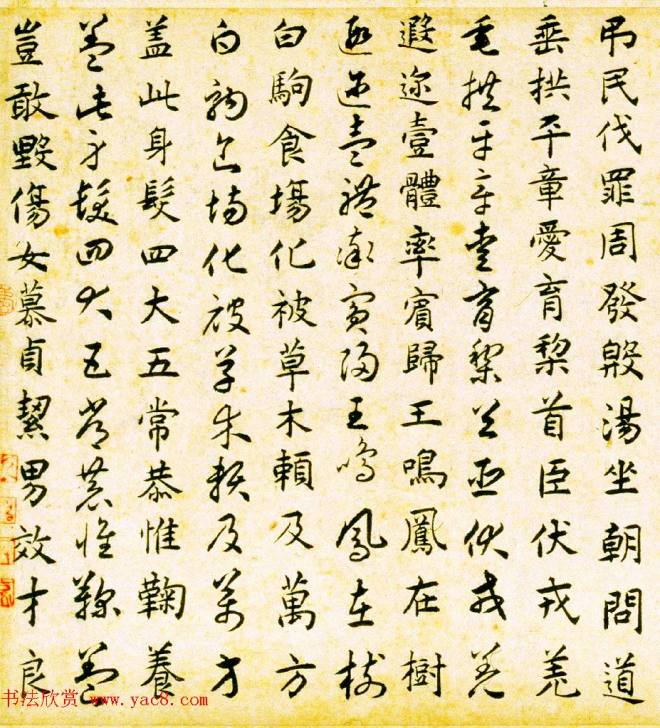 弔民伐罪周發殷湯坐朝問道
垂拱平章愛育黎首臣伏戎羌
垂拱平章愛育黎首臣伏戎羌
遐迩壹體率賓歸王鳴鳳在樹
遐迩壹體率賓歸王鳴鳳在樹
白駒食場化被草木頼及萬方
白駒食場化被草木頼及萬方
盖此身髮四大五常恭惟鞠養
盖此身髮四大五常恭惟鞠養
豈敢毀傷女慕貞絜男效才良
书法欣赏 www.yac8.com